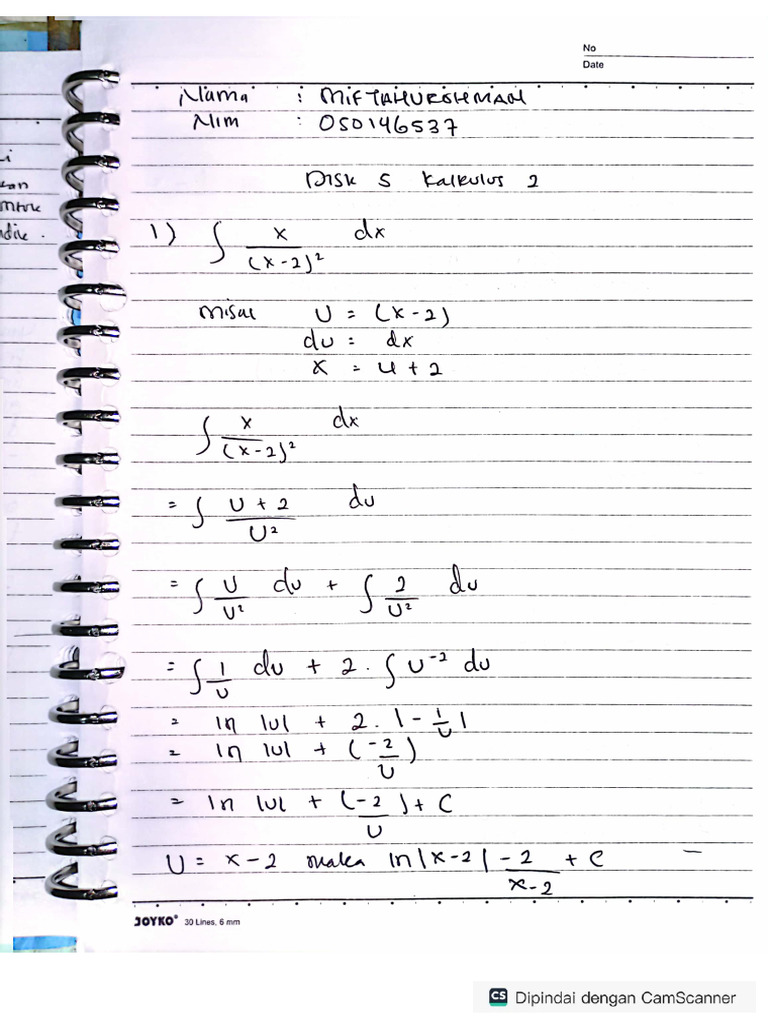 No
Date
Nama : MIFTAHURROHMAN
Nim : 050146537
Disk 5 Kalkulus 2
1) ∫ x/(x-2)² dx
misal U = (x-2)
du = dx
x = u + 2
∫ x/(x-2)² dx
= ∫ U + 2/U² du
= ∫ U/U² du + ∫ 2/U² du
= ∫ 1/U du + 2 . ∫ U⁻² du
= ln |U| + 2 . |-1/U|
= ln |U| + (-2/U)
= ln |U| + (-2/U) + C
U = x-2 maka ln|x-2| -2/x-2 + C
JOYKO® 30 Lines, 6 mm
CS Dipindai dengan CamScanner